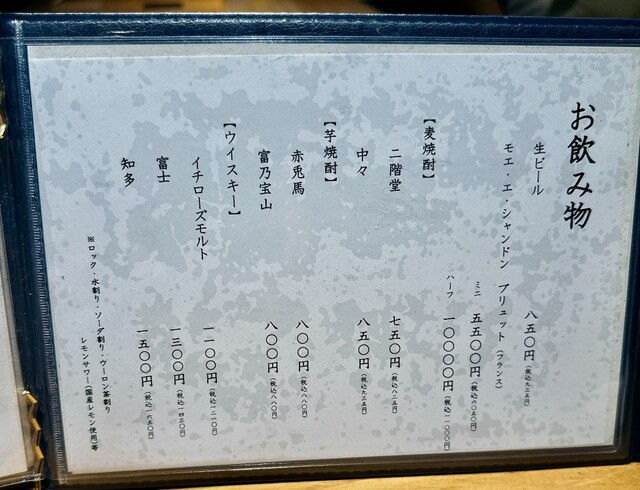 お飲み物
生ビール 八五〇円（税込九三五円）
モエ・エ・シャンドン ブリュット（フランス）
ミニ 五五〇〇円（税込六〇五〇円）
ハーフ 一〇〇〇〇円（税込一一〇〇〇円）
【麦焼酎】
二階堂 七五〇円（税込八二五円）
中々 八五〇円（税込九三五円）
【芋焼酎】
赤兎馬 八〇〇円（税込八八〇円）
富乃宝山 八〇〇円（税込八八〇円）
【ウイスキー】
イチローズモルト 一一〇〇円（税込一二一〇円）
富士 一三〇〇円（税込一四三〇円）
知多 一五〇〇円（税込一六五〇円）
※ロック・水割り・ソーダ割り・ウーロン茶割り
レモンサワー（国産レモン使用）等